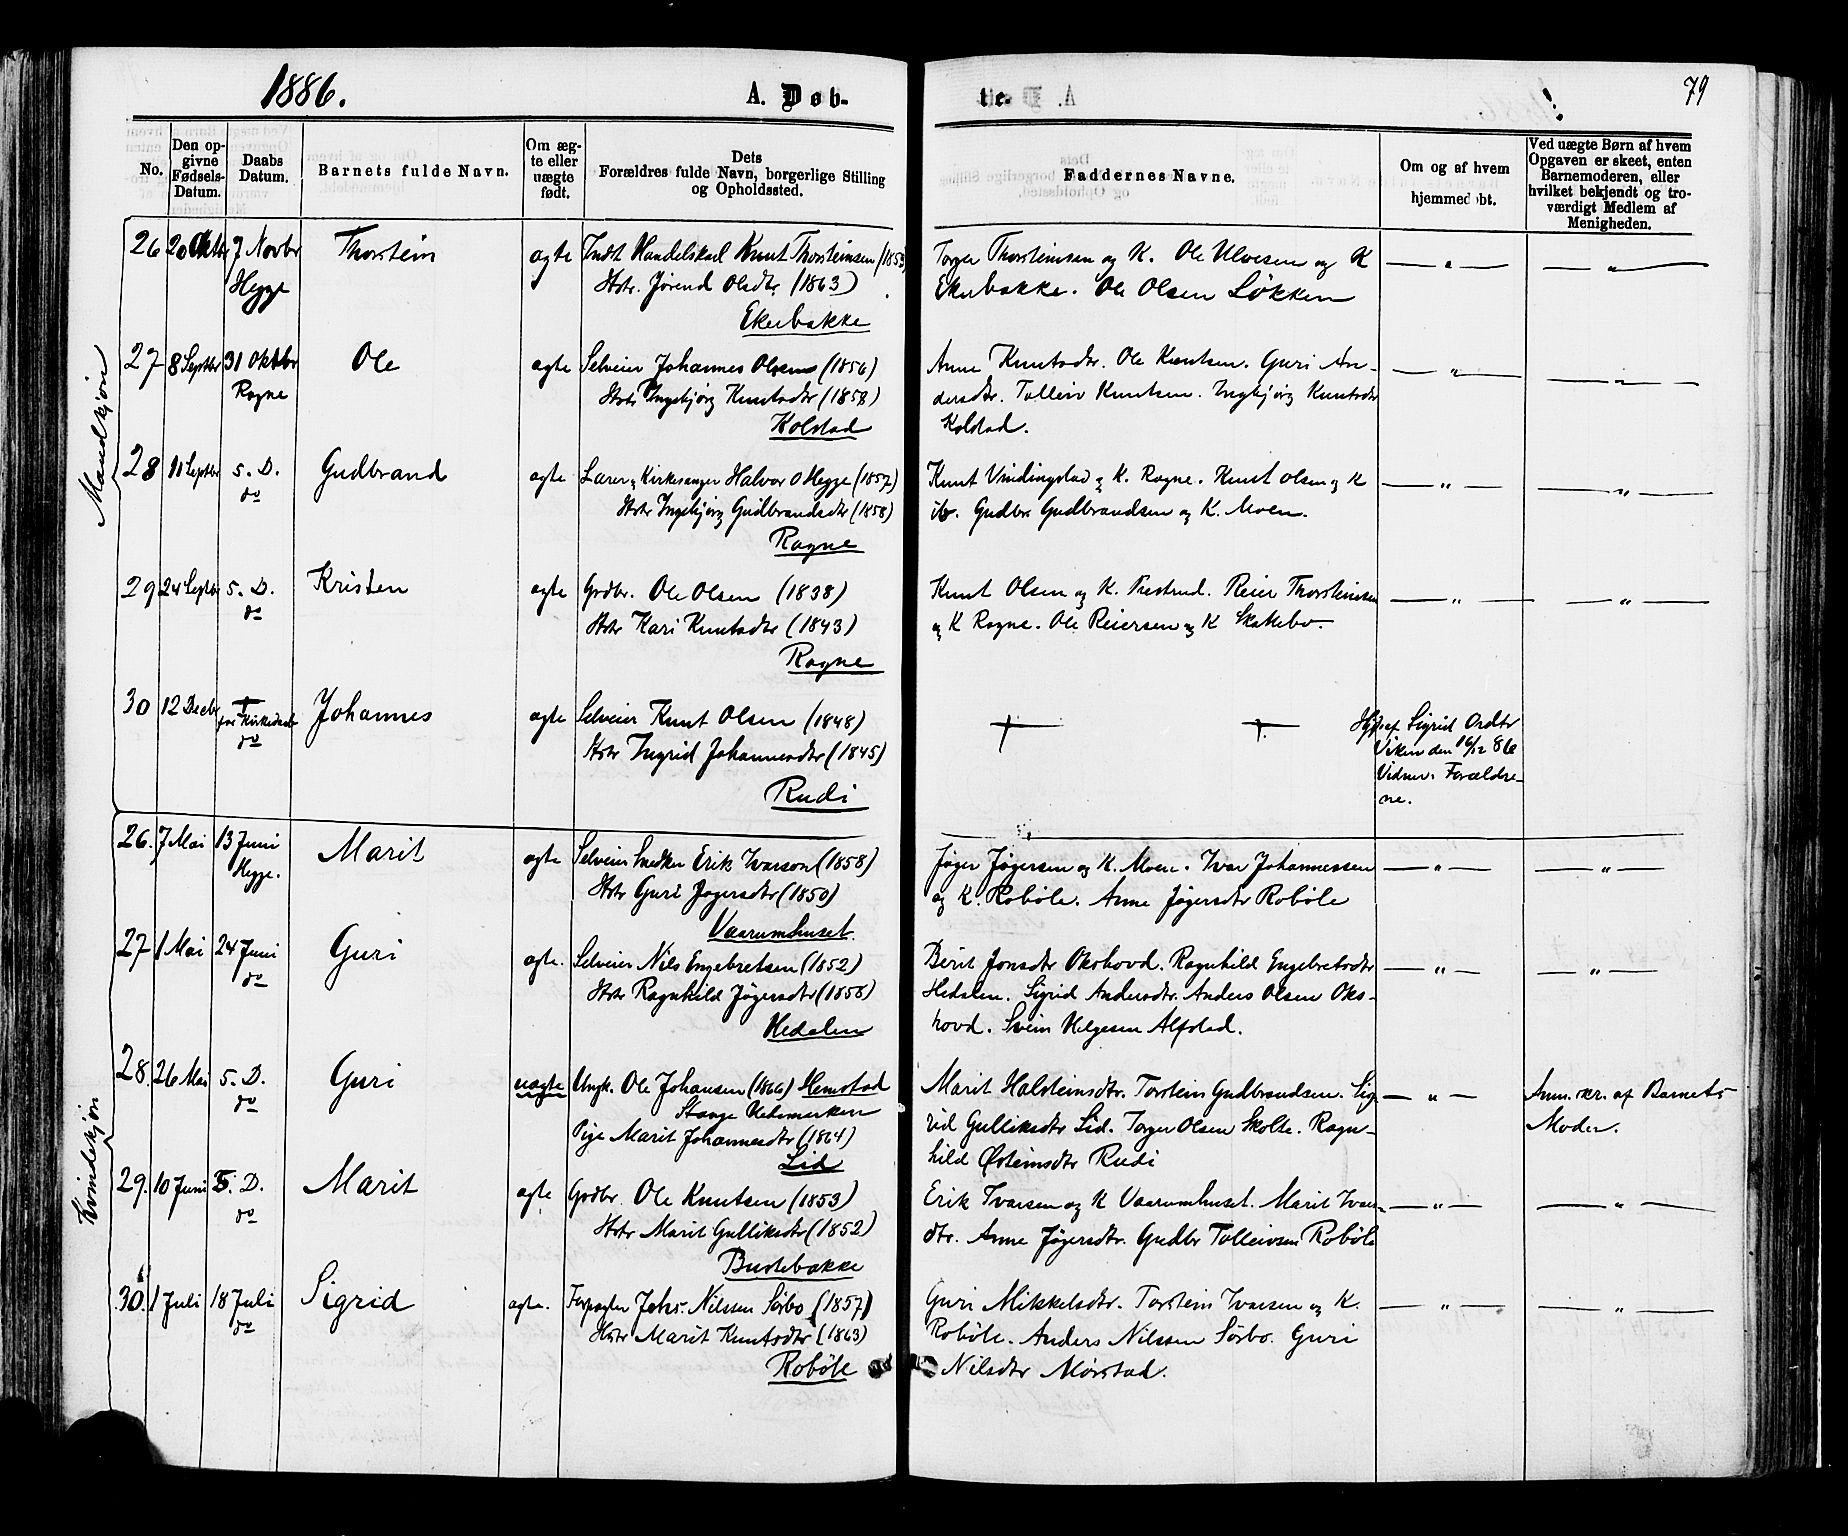 1886.
A. Døb-
te.
79
No.
Den op-
givne
Fødsels-
Datum.
Daabs
Datum.
Barnets fulde Navn.
Om æg-
te eller
uægte
født.
Dets
Forældres fulde Navn, borgerlige Stilling
og Opholdssted.
Faddernes Navne.
Om og af hvem
hjemmedøbt.
Ved uægte Børn af hvem
Opgaven er skeet, enten
Barnemoderen, eller
hvilket bekjendt og tro-
værdigt Medlem af
Menigheden.
Mandkjøn
26 20 Oktbr 7 Novbr Thorstein ægte Indt Handelskarl Knut Thorsteinsen (1853) Torger Thorsteinsen og K. Ole Ulvesen og K — " — — " —
Hegge Hstr. Jørend Olsdtr (1863) Ekerbakke. Ole Olsen Løkken
Ekerbakke
27 8 Septbr 31 Oktbr Ole ægte Selveier Johannes Olsen (1856) Anne Knutsdtr. Ole Knutsen. Guri An- — " — — " —
Rogne Hstr Ingebjørg Knutsdtr (1858) dersdtr. Tolleiv Knutsen. Ingebjørg Knutsdtr
Kolstad Kolstad.
28 11 Septbr s. D. Gudbrand ægte Lærer og Kirkesanger Halvor O Hegge (1857) Knut Vindingstad og K. Rogne. Knut Olsen og K — " — — " —
do Hstr Ingebjørg Gudbrandsdtr (1858) ib. Gudbr. Gudbrandsen og K. Moen.
Rogne
29 24 Septbr s. D. Kristen ægte Grdbr. Ole Olsen (1838) Knut Olsen og K. Prestrud. Reier Thorsteinsen — " — — " —
do Hstr Kari Knutsdtr (1843) og K Rogne. Ole Reiersen og K Skattebo.
Rogne
30 12 Decbr † Johannes ægte Selveier Knut Olsen (1848) † † Hjd. af Sigrid Ordtr
før Kirkedaab
do Hstr Ingrid Johannesdtr (1845) Viken den 16/12 86
Rudi Vidner: Forældre-
ne.
Kvindekjøn
26. 7 Mai 13 Juni Marit ægte Selveier Snedker Erik Ivarson (1858) Jøger Jøgersen og K. Moen. Ivar Johannessen — " — — " —
Hegge. Hstr Guri Jøgersdtr (1850) og K. Robøle. Anne Jøgersdtr Robøle
Vaarumhuset.
27 1 Mai 24 Juni Guri ægte. Selveier Nils Engebretsen (1852) Berit Jonsdtr Okshovd. Ragnhild Engebretsdtr — " — — " —
do Hstr Ragnhild Jøgersdtr (1856) Hedalen. Sigrid Andersdtr. Anders Olsen Oks-
Hedalen hovd. Svein Helgesen Alfstad.
28. 26 Mai s. D. Guri uægte Ungk. Ole Johansen (1866) Hemstad Marit Halsteinsdtr. Torstein Gudbrandsen. Sig- — " — Ann. skr. af Barnets
do Stange Hedemarken rid Gulliksdtr Lid. Torger Olsen Skolte. Ragn- Moder.
Pige Marit Johannesdtr (1864) hild Østeinsdtr Rudi
Lid
29. 10 Juni s. D. Marit ægte Grdbr. Ole Knutsen (1853) Erik Ivarsen og K Vaarumhuset. Marit Ivars- — " — — " —
do Hstr Marit Gulliksdtr (1852) dtr. Anne Jøgersdtr. Gudbr Tolleivsen Robøle
Burtebakke
30. 1 Juli 18 Juli Sigrid ægte. Forpagter Johs. Nilssen Sørbo (1857) Guri Mikkelsdtr. Torstein Ivarsen og K. — " — — " —
do Hstr Marit Knutsdtr (1863) Robøle. Anders Nilssen Sørbo. Guri
Robøle Nilsdtr Mørstad.